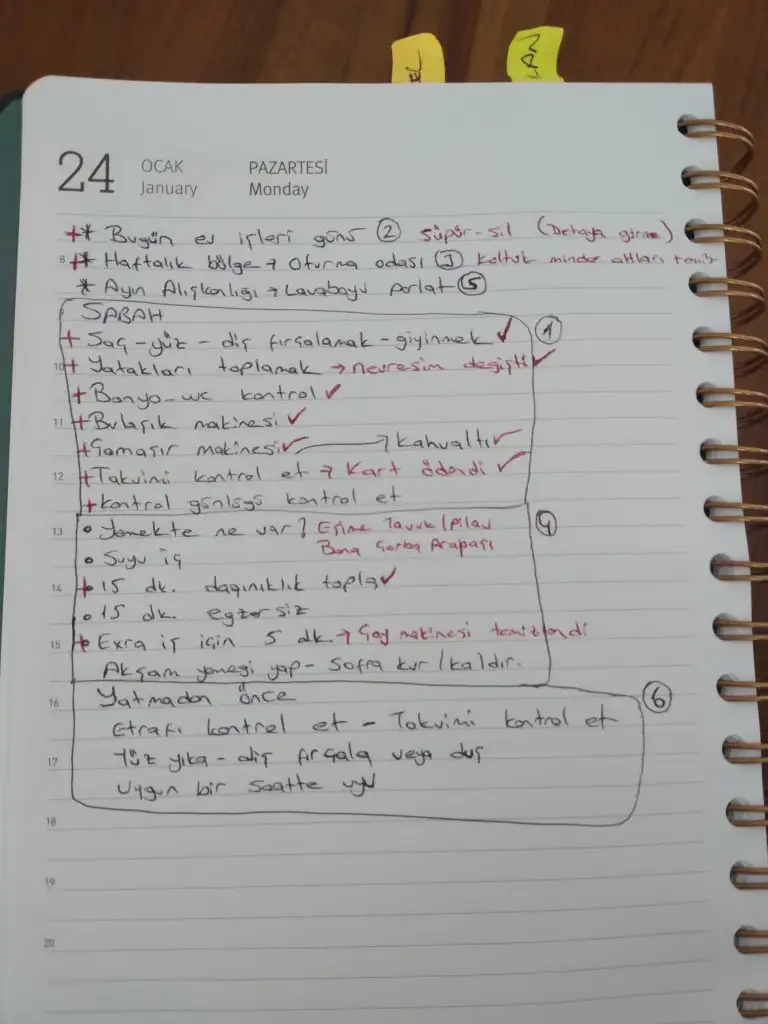 EL
LAN
24 OCAK PAZARTESİ
January Monday
+* Bugün ev işleri günü ② süpür-sil (Detaya girme)
8 +* Haftalık bölge → Oturma odası ③ Koltuk minder altları temiz
* Ayın Alışkanlığı → Lavaboyu parlat ⑤
SABAH
+ Saç-yüz-diş fırçalamak-giyinmek ✓ ①
10 + Yatakları toplamak → nevresim değişti ✓
+ Banyo-wc kontrol ✓
11 + Bulaşık makinesi ✓
+ Çamaşır makinesi ✓ → Kahvaltı ✓
12 + Takvimi kontrol et → Kart ödendi ✓
+ Kontrol günlüğü kontrol et
13 • Yemekte ne var? Eşime Tavuk/Pilav ④
• Suyu iç Bana Çorba Arapaşı
14 + 15 dk. dağınıklık topla ✓
• 15 dk. egzersiz
15 + Exra iş için 5 dk. → Çay makinesi temizlendi
Akşam yemeği yap - Sofra kur/kaldır.
16 Yatmadan önce ⑥
Etrafı kontrol et - Takvimi kontrol et
17 Yüz yıka - diş fırçala veya duş
Uygun bir saatte uyu
18
19
20